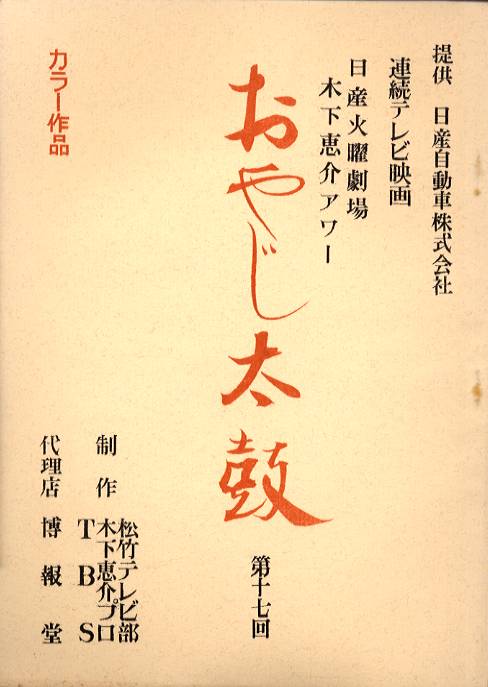 提供 日産自動車株式会社
連続テレビ映画
日産火曜劇場
木下恵介アワー
おやじ太鼓
第十七回
カラー作品
制作 松竹テレビ部
木下恵介プロ
TBS
代理店 博報堂